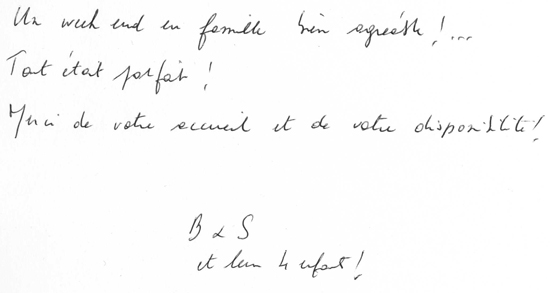 Un week end en famille bien agréable !...
Tout était parfait !
Merci de votre accueil et de votre disponibilité !
B & S
et leurs 4 enfants !